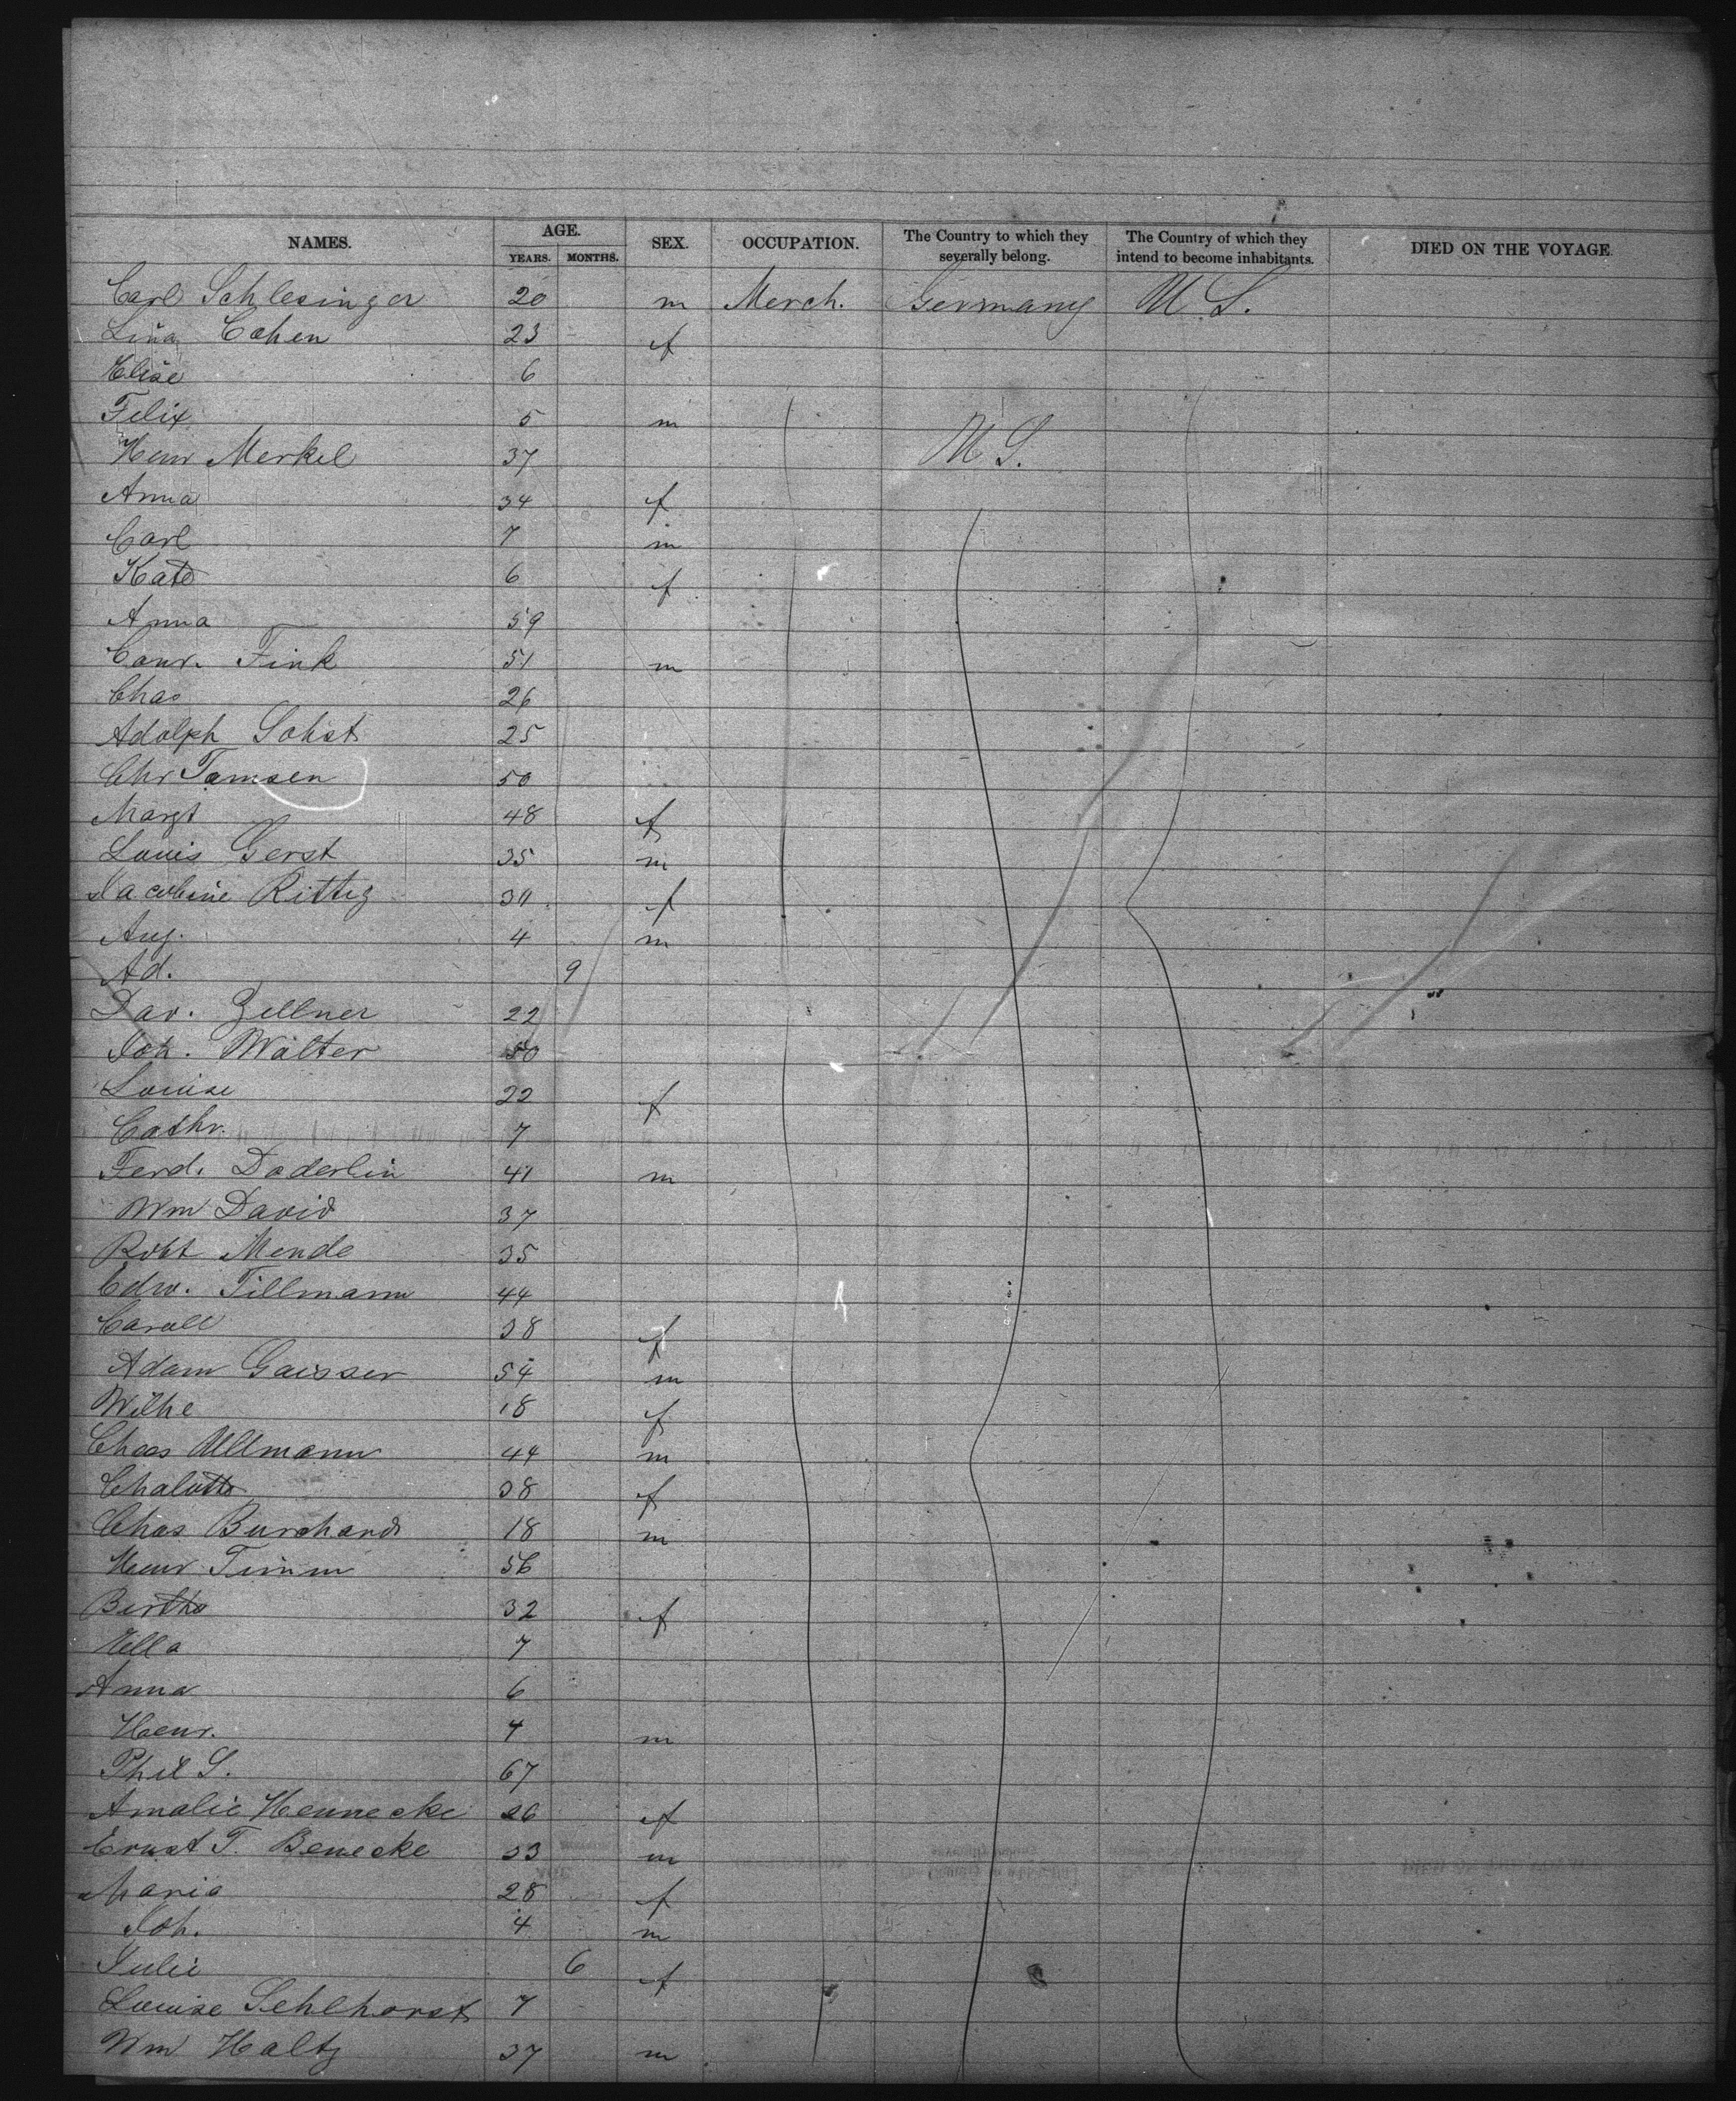 NAMES. AGE. SEX. OCCUPATION. The Country to which they severally belong. The Country of which they intend to become inhabitants. DIED ON THE VOYAGE.
YEARS. MONTHS.
Carl Schlesinger 20 m Merch. Germany U S.
Lina Cohen 23 f
Elise 6
Felix 5 m
Henr Merkel 37 U S.
Anna 34 f
Carl 7 m
Kate 6 f
Anna 59
Conr. Fink 51 m
Chas 26
Adolph Sohst 25
Chr Tamsen 50
Margt 48 f
Louis Gerst 35 m
Jacobine Rittig f
Aug. 4 m
Ad. 9
Dav. Zellner 22
Joh. Walter 50
Louise 22 f
Cathr. 7
Ferd. Doderlin 41 m
Wm David 37
Robt Mende 35
Edw. Tillmann 44
Caroll 38 f
Adam Gaisser 54 m
Wilhe 18 f
Chas Ullmann 44 m
Chalotte 38 f
Chas Burchard 18 m
Henr Timm 56
Bertha 32 f
Ella 7
Anna 6
Henr. 4 m
Phil S. 67
Amalie Hennecke 26 f
Ernst T. Benecke 33 m
Maria 28 f
Joh. 4 m
Julie 6 f
Louise Sehlhorst 7
Wm Haltz 37 m